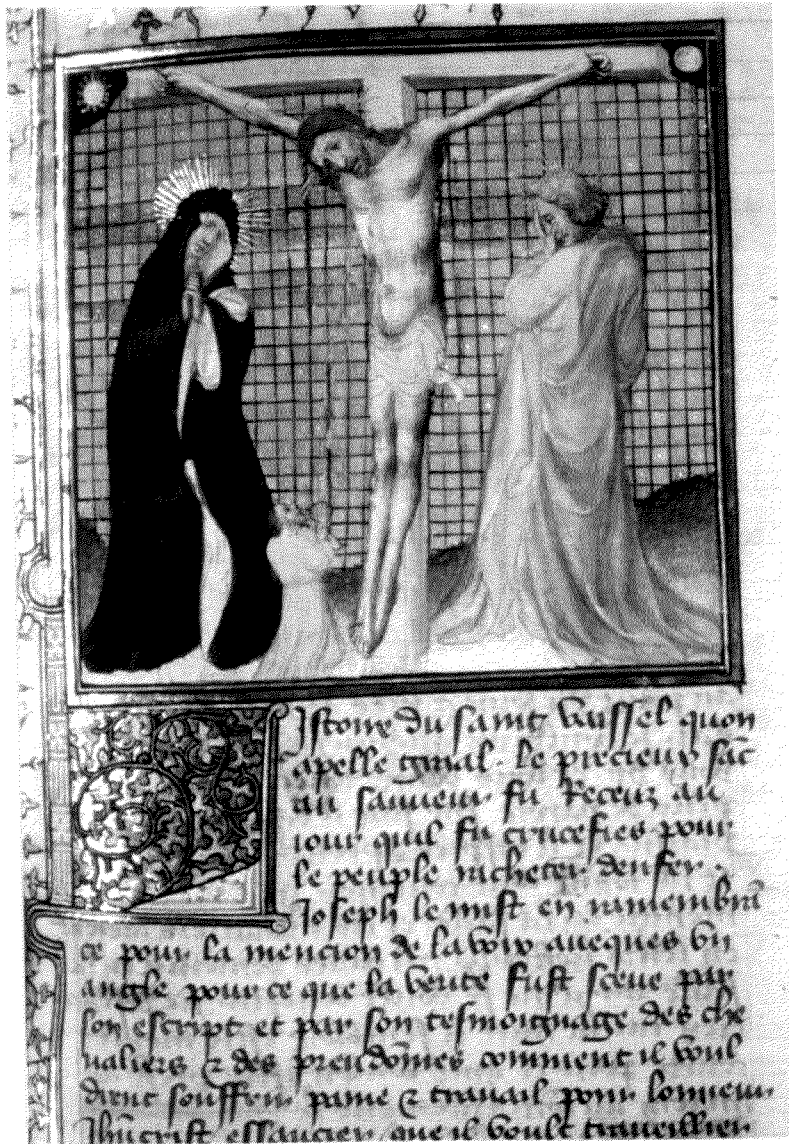 Istoire du saint vaissel quon
apelle graal. le precieux sãc
au sauueur fu Receuz au
iour quil fu crucefies pour
le peuple racheter denfer.
Joseph le mist en ramembrã
ce pour la mencion de la voix auecques vn
angle pour ce que la verite fust sceue par
son escript et par son tesmoignage des che
ualiers & des preudõmes comment il voul
drent souffrir paine & trauail pour lonneur
Jhũcrist essaucier que il voult trauueillier